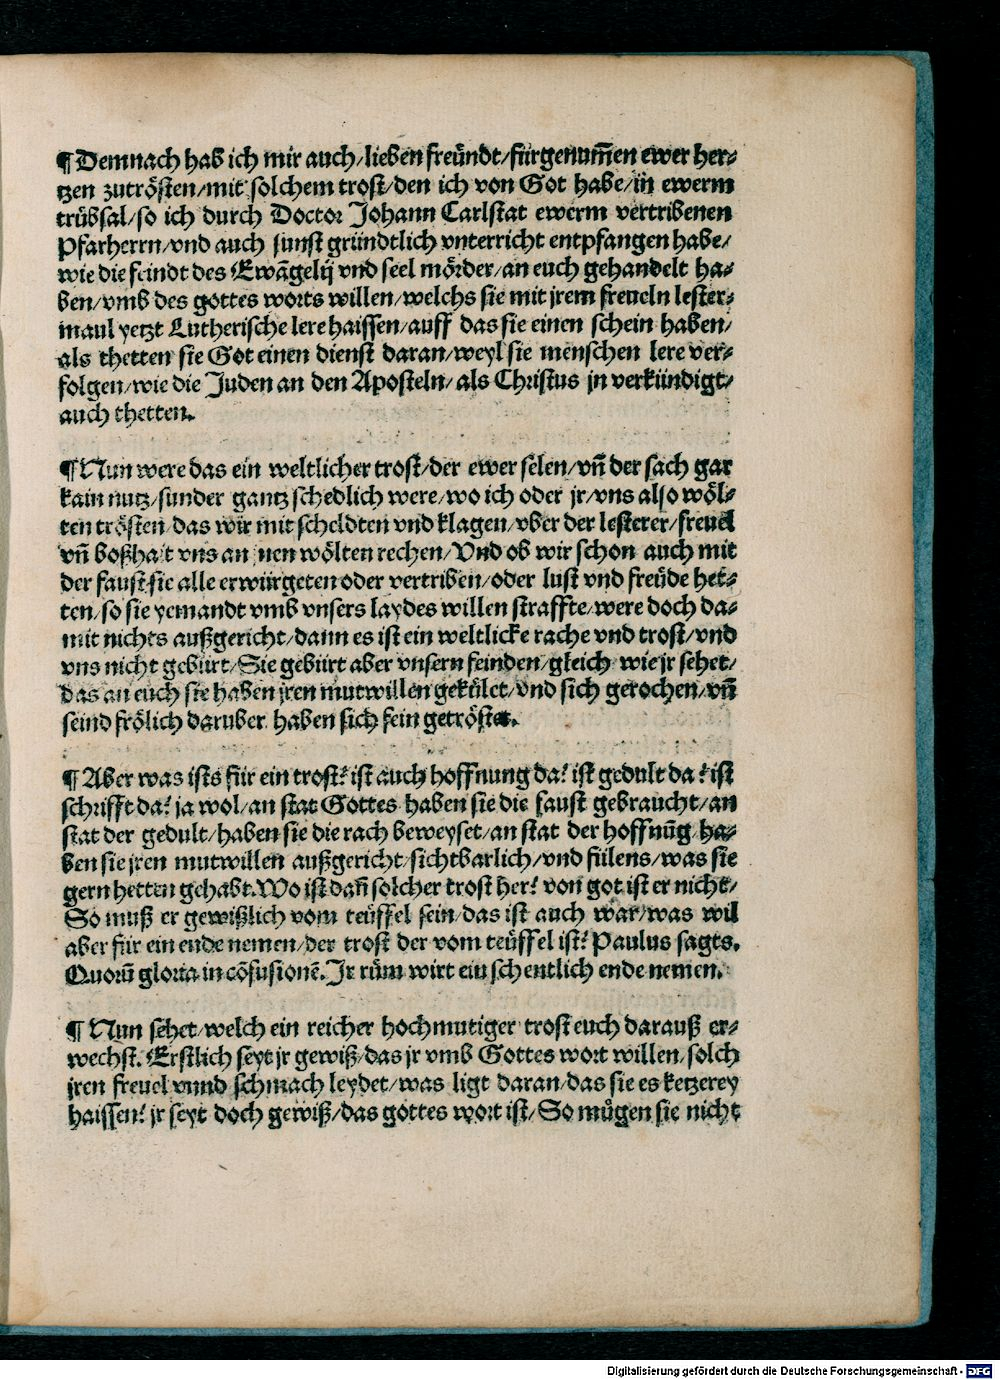 ¶ Demnach hab ich mir auch/lieben freündt/fürgenum̃en ewer her⸗
tzen zutrösten/mit solchem trost/den ich von Got habe/in ewerm
trübsal/so ich durch Doctor Johann Carlstat ewerm vertribenen
Pfarherrn/vnd auch sunst gründtlich vnterricht entpfangen habe/
wie die feindt des Ewãgelij vnd seel mörder/an euch gehandelt ha⸗
ben/vmb des gottes worts willen/welchs sie mit jrem freueln lester⸗
maul yetzt Lutherische lere haissen/auff das sie einen schein haben/
als thetten sie Got einen dienst daran/weyl sie menschen lere ver⸗
folgen/wie die Juden an den Aposteln/als Christus jn verkündigt/
auch thetten.
¶ Nun were das ein weltlicher trost/der ewer selen/vñ der sach gar
kain nutz/sunder gantz schedlich were/wo ich oder jr/vns also wöl⸗
ten trösten/das wir mit scheldten vnd klagen/vber der lesterer/freuel
vñ boßhait vns an jnen wölten rechen/Vnd ob wir schon auch mit
der faust sie alle erwürgeten oder vertriben/oder lust vnd freüde het⸗
ten/so sie yemandt vmb vnsers laydes willen straffte/were doch da⸗
mit nichts außgericht/dann es ist ein weltliche rache vnd trost/vnd
vns nicht gebürt/Sie gebürt aber vnsern feinden/gleich wie jr sehet/
das an euch sie haben jren mutwillen gekület/vnd sich gerochen/vñ
seind frölich daruber haben sich fein getröstet.
¶ Aber was ists für ein trost? ist auch hoffnung da? ist gedult da? ist
schrifft da? ja wol/an stat Gottes haben sie die faust gebraucht/an
stat der gedult/haben sie die rach beweyset/an stat der hoffnũg ha⸗
ben sie jren mutwillen außgericht/sichtbarlich/vnd fülens/was sie
gern hetten gehabt. Wo ist dañ solcher trost her? von got ist er nicht/
So muß er gewißlich vom teüffel sein/das ist auch war/was wil
aber für ein ende nemen/der trost der vom teüffel ist? Paulus sagts.
Quorũ gloria in cõfusionẽ. Jr rüm wirt ein schentlich ende nemen.
¶ Nun sehet/welch ein reicher hochmutiger trost euch darauß er⸗
wechst. Erstlich seyt jr gewiß/das jr vmb Gottes wort willen/solch
jren freuel vnnd schmach leydet/was ligt daran/das sie es ketzerey
haissen? jr seyt doch gewiß/das gottes wort ist/So mügen sie nicht
Digitalisierung gefördert durch die Deutsche Forschungsgemeinschaft - DFG